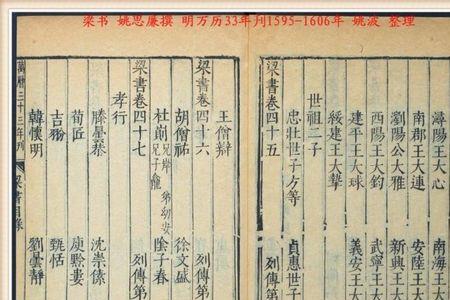 梁书 姚思廉撰 明万历33年刊1595-1606年 姚波 整理
潯陽王大心 南海王大
南郡王大連 安陸王大
瀏陽公大雅 新興王大
西陽王大鈞 武寧王大
建平王大球 義安王大
綏建王大摯
世祖二子
忠壯世子方等 貞惠世子
梁書卷四十五 列傳第
王僧辯
梁書卷四十六 列傳第
胡僧祐 徐文盛
杜崱 兄岸 弟幼安 兄子龕 陰子春
梁書卷四十七 列傳第
孝行
滕曇恭 沈崇傃
荀匠 庾黔婁
吉翂 甄恬
韓懷明 劉曇靜
萬曆三十三年刊 梁書目錄